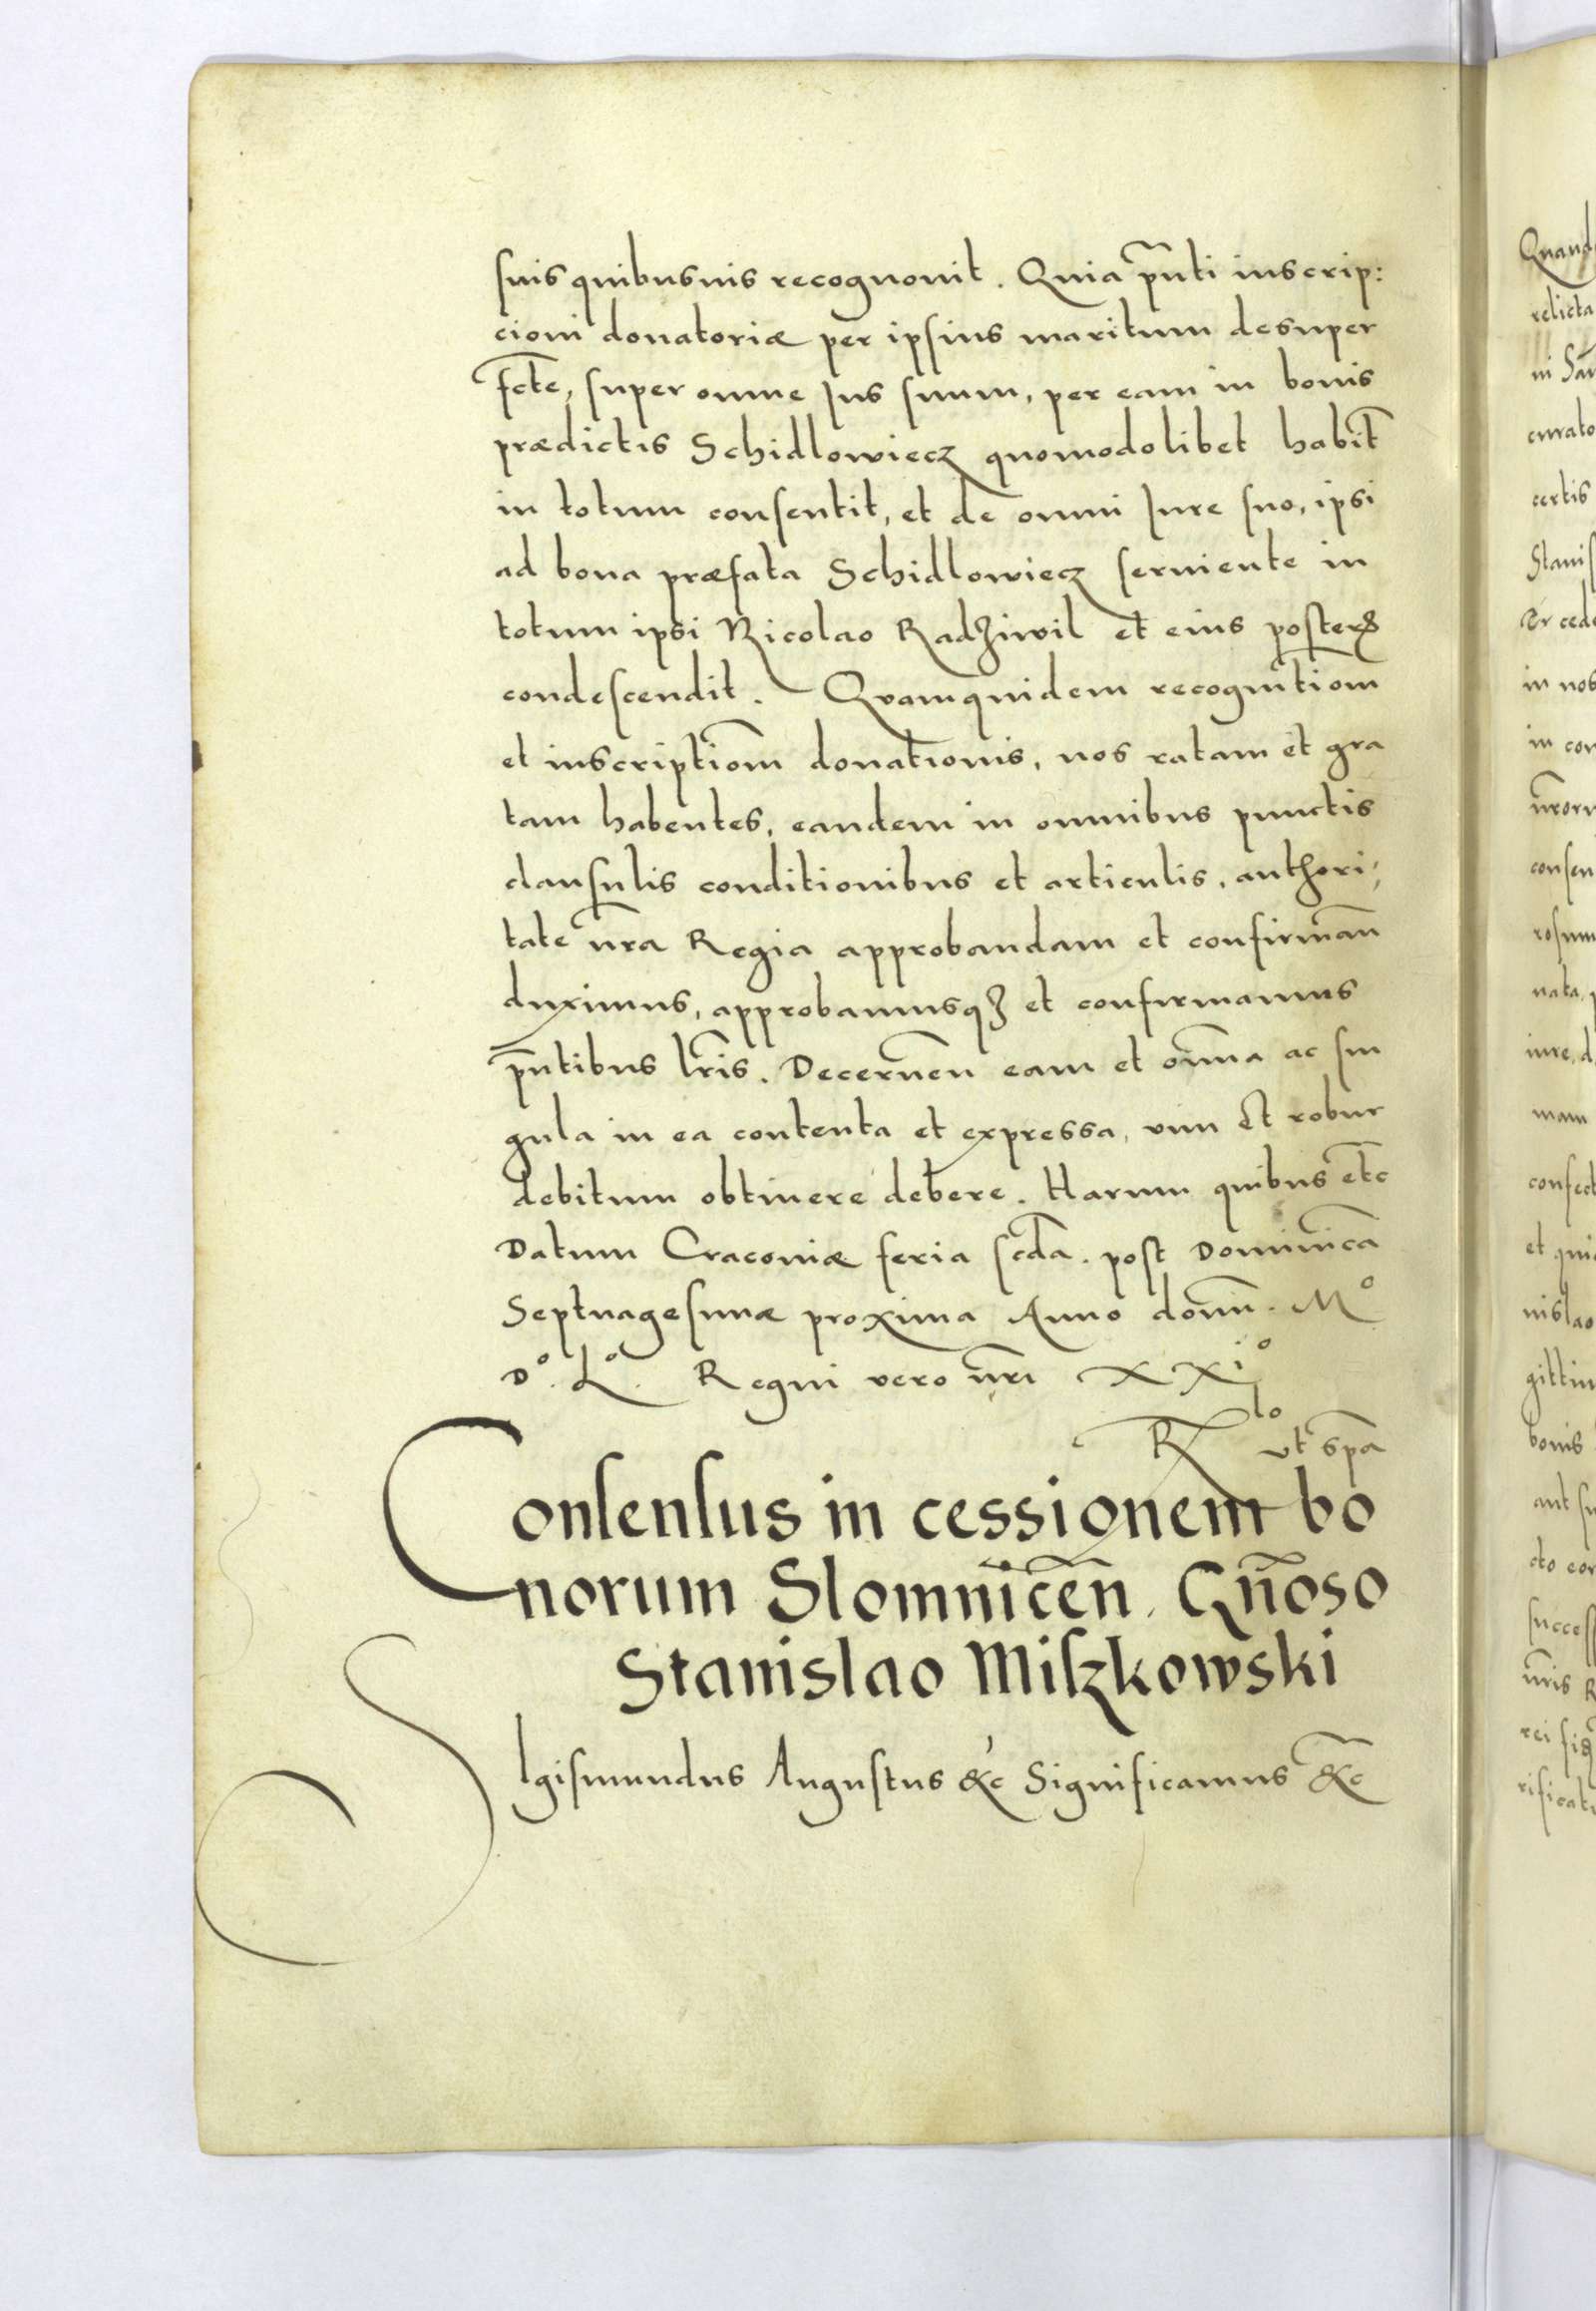 suis quibusuis recognouit. Quia pñti inscrip:
cioni donatoriæ per ipsius maritum desuper
fcte, super omne Ius suum, per eam in bonis
prædictis Schidlowiecz quomodolibet habit̃
in totum consentit, et de omni Iure suo, ipsi
ad bona præfata Schidlowiecz seruiente in
totum ipsi Nicolao Radziwil et eius posteris
condescendit. Quamquidem recognitiom̃
et inscriptiom̃ donationis, nos ratam et gra
tam habentes, eandem in omnibus punctis
clausulis conditionibus et articulis, authori,
tate ñra Regia approbandam et confirmañ
duximus, approbamusqz et confirmamus
pñtibus lr̃is. Decerneñ eam et oĩna ac sin
gula in ea contenta et expressa, vim et robur
debitum obtinere debere. Harum quibus etc
Datum Cracouiæ feria scda. post Dominica
Septuagesimæ proxima Anno domñ. Mº
Dº. Lº. Regni vero ñri XXiº
Rlº vt spã
Consensus in cessionem bo
norum Slomniceñ. Gñoso
Stanislao Miszkowski
SIgismundus Augustus &c Significamus &c
Quand
relicta
curato
certis
Stanis
cede
in nos
in con
ñrorum
consen
rosum
nata,
iure, d
mam
confect
et qui
nislao
gittim
bonis
aut su
cto eor
success
ñris R
rei sig
rificat